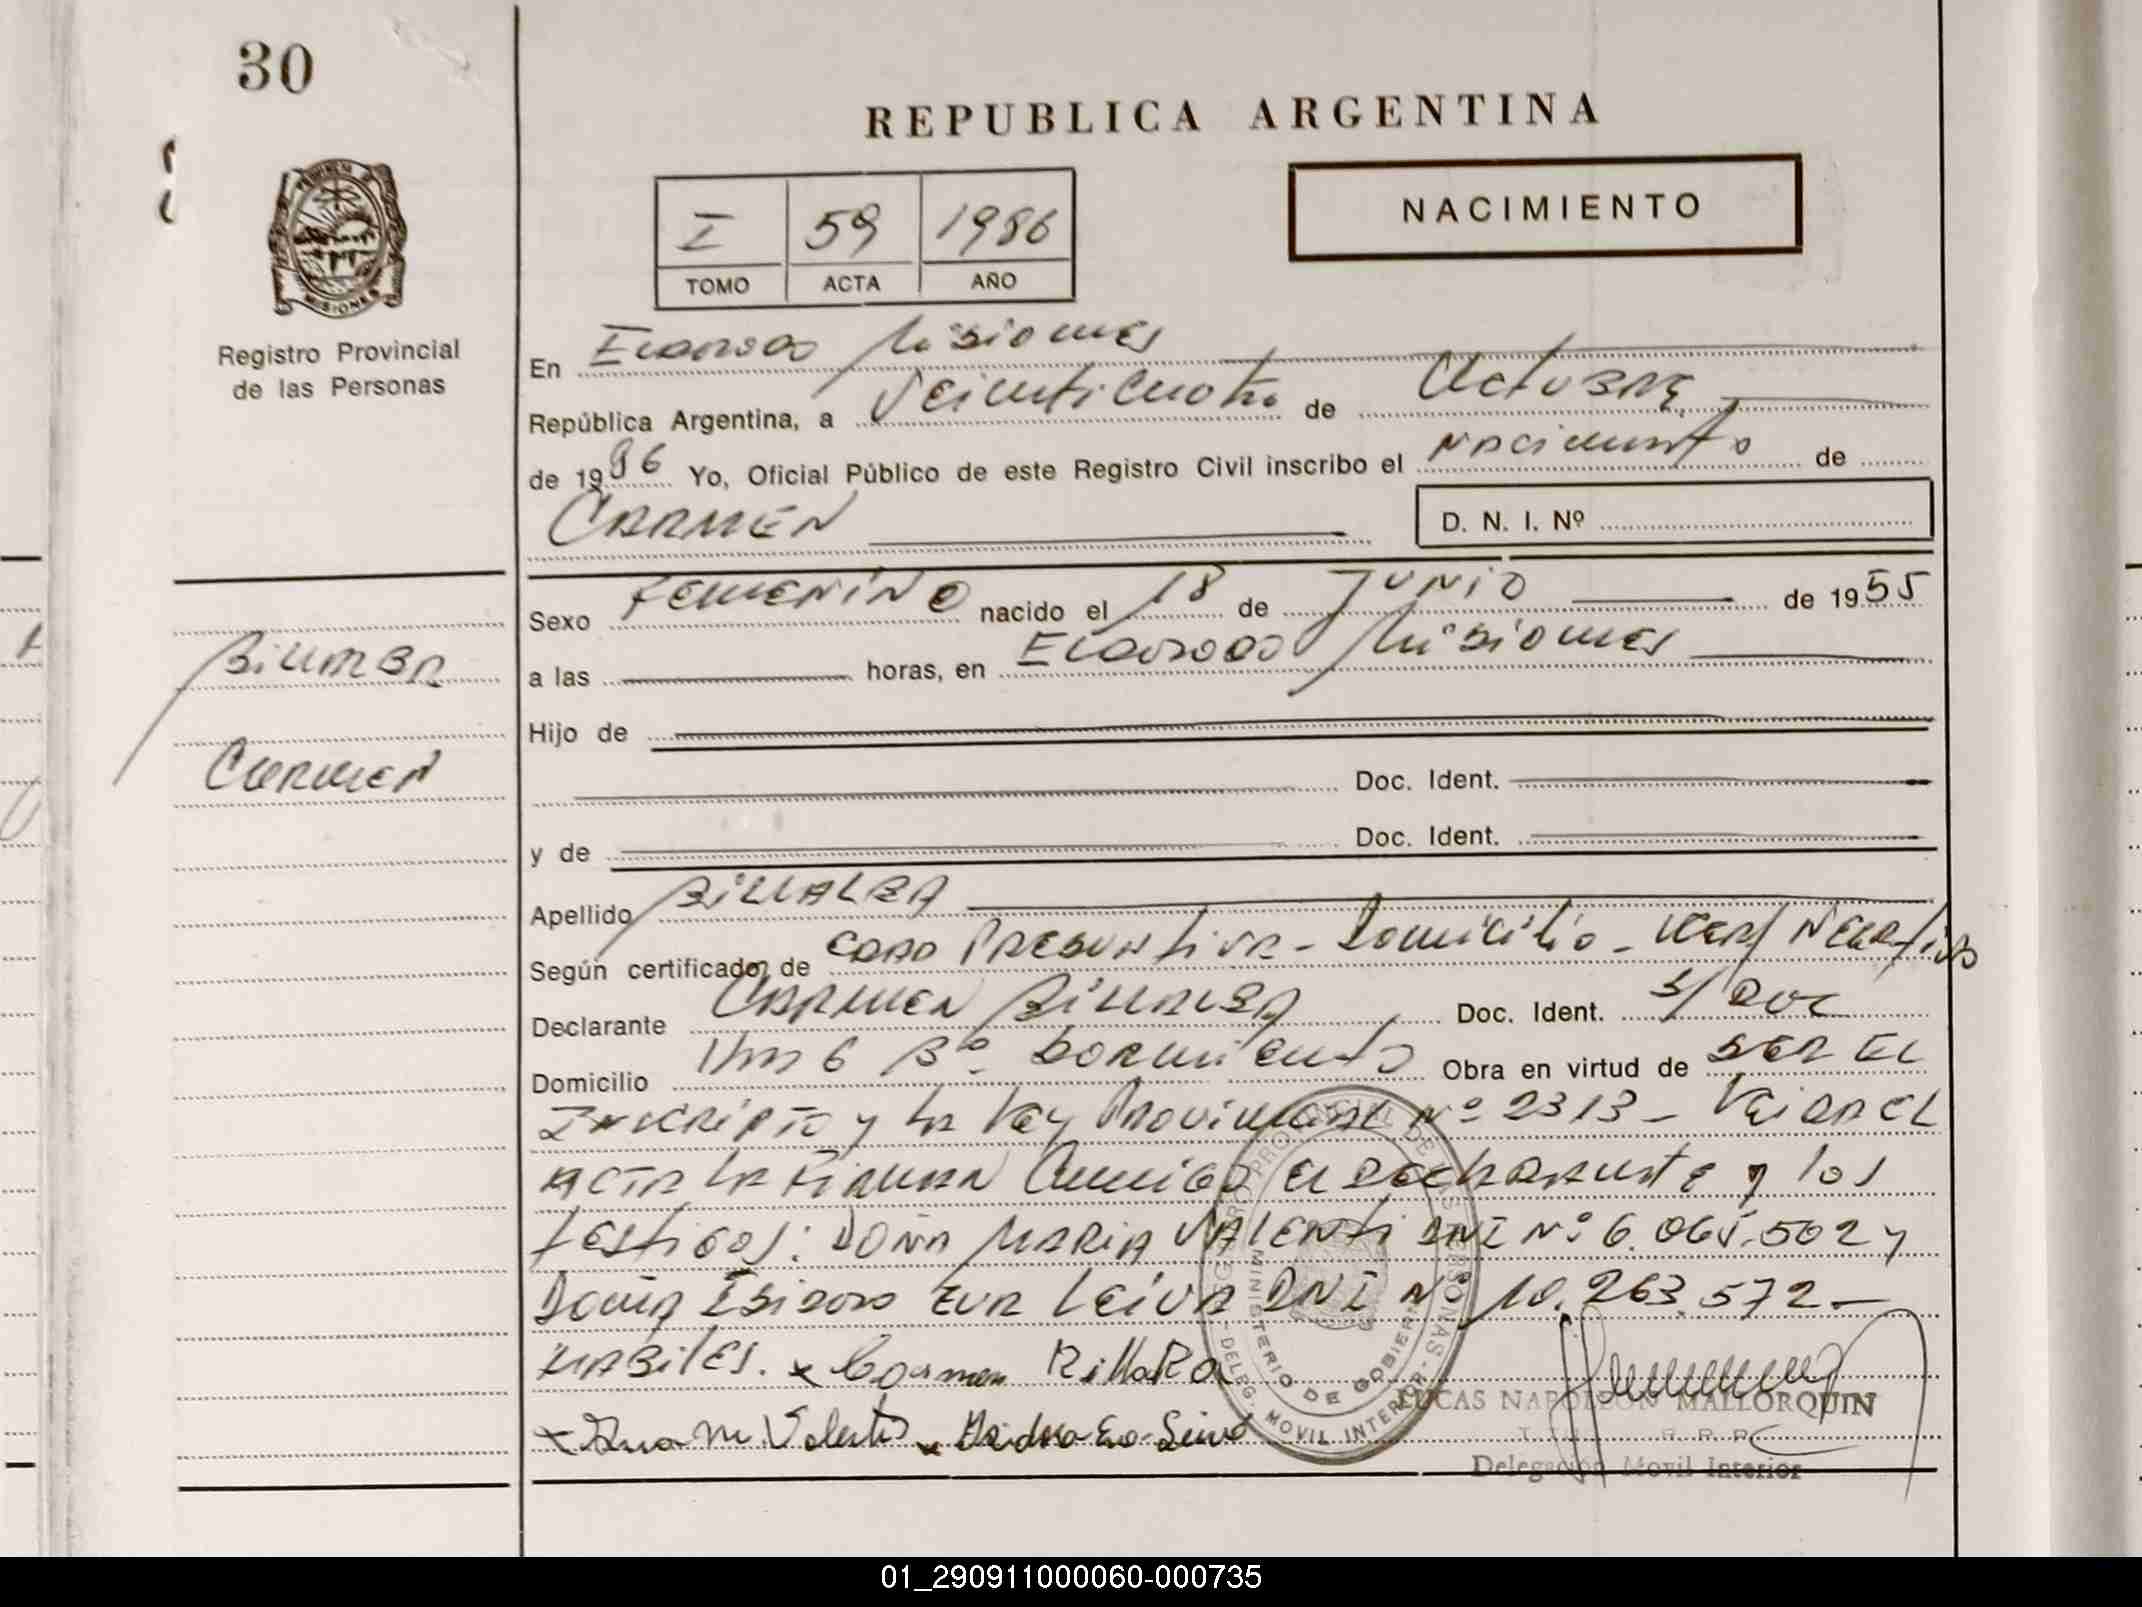 30
REPUBLICA ARGENTINA
NACIMIENTO
I 59 1986
TOMO ACTA AÑO
PROVINCIA DE MISIONES
Registro Provincial
de las Personas
En Eldorado Misiones
República Argentina, a Veinticuatro de Octubre
de 1986 Yo, Oficial Público de este Registro Civil inscribo el nacimiento de
CARMEN
D. N. I. Nº
Sexo FEMENINO nacido el 18 de JUNIO de 1955
a las horas, en Eldorado Misiones
Hijo de
Doc. Ident.
y de Doc. Ident.
BILLALBA
CARMEN
Apellido BILLALBA
Según certificado, de EDAD PRESUNTIVA - Domicilio - CERT NEGATIVO
Declarante CARMEN BILLALBA Doc. Ident. S/DOC
Domicilio Km 6 Bº Sarmiento Obra en virtud de SER EL
INSCRIPTO y la Ley Provincial Nº 2313 - Leida el
ACTA la FIRMAN Conmigo el declarante y los
testigos: DOÑA MARIA VALENTI DNI Nº 6.065.502 y
DOÑA ISIDORA EVA LEIVA DNI Nº 10.263.572 -
HABILES. x Carmen BillaBa
x Ana M. Valenti x Isidora Eva Leiva
REGISTRO PROVINCIAL DE LAS PERSONAS - DELEG. MOVIL INTERIOR -
MINISTERIO DE GOBIERNO
LUCAS NAPOLEON MALLORQUIN
R. P. P.
Delegación Movil Interior
01_290911000060-000735